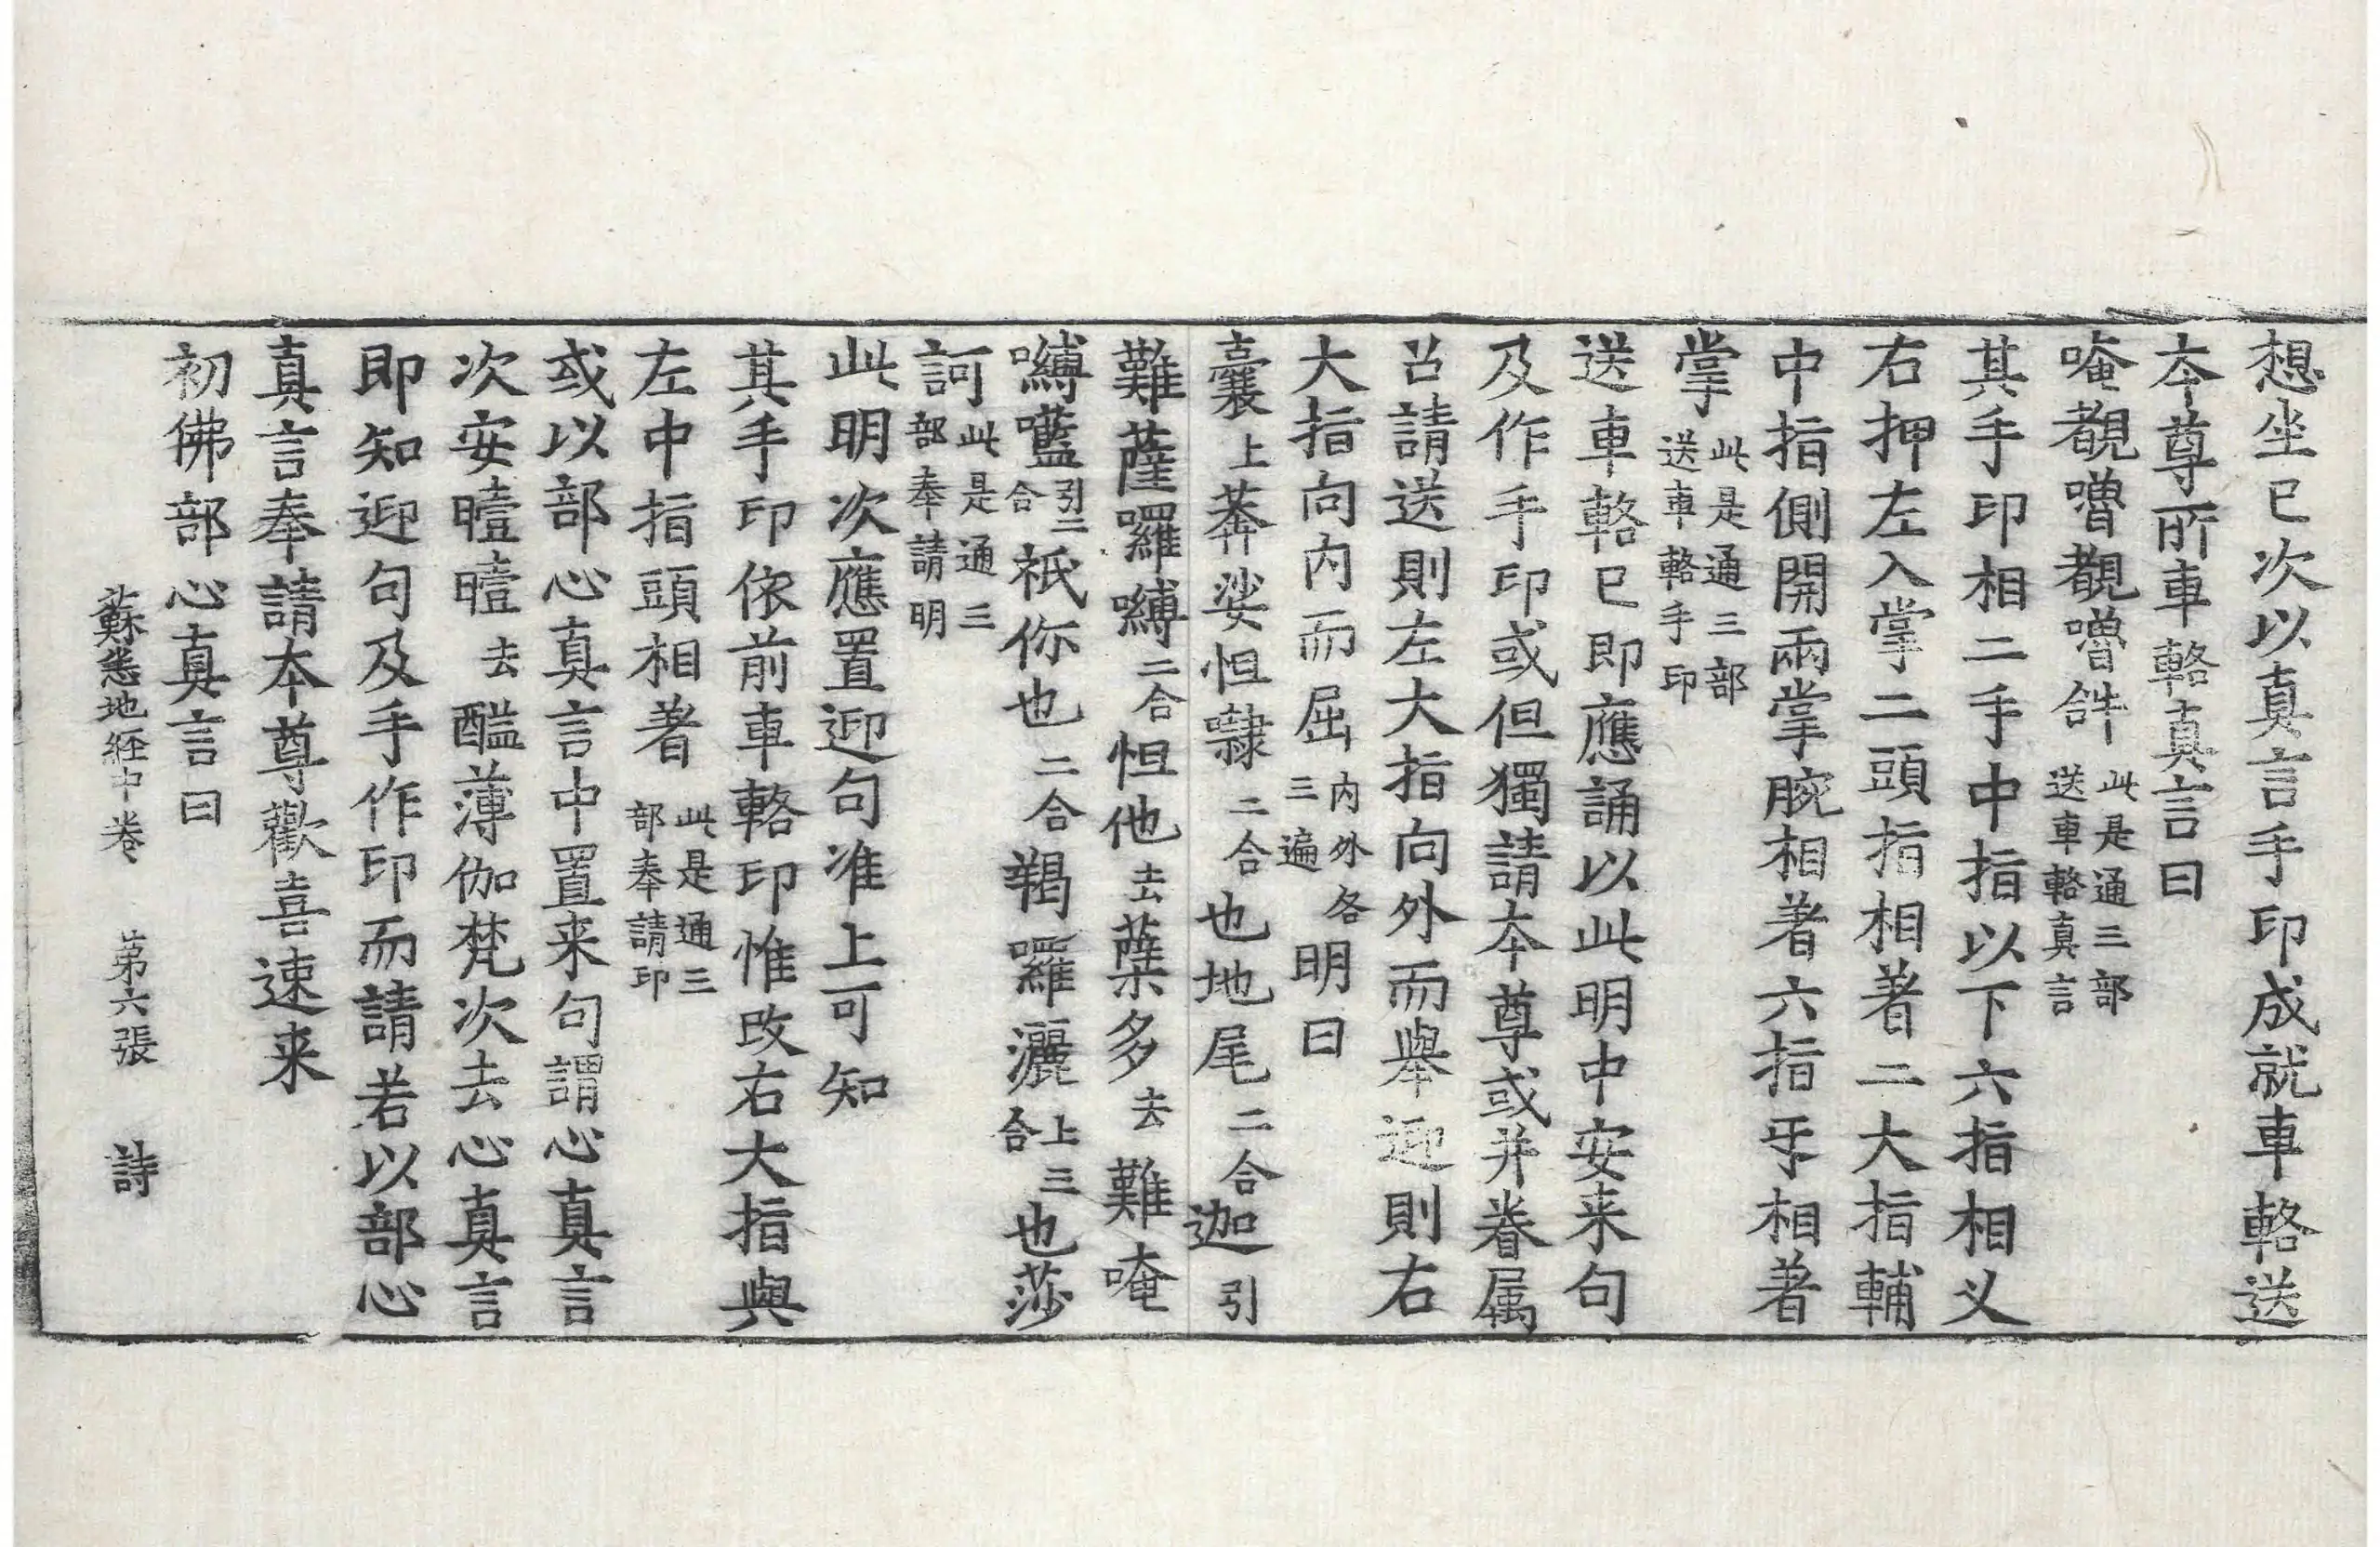 想坐已次以真言手印成就車輅送
本尊所車輅真言曰
唵覩嚕覩嚕𤙖此是通三部送車輅真言
其手印相二手中指以下六指相叉
右押左入掌二頭指相著二大指輔
中指側開兩掌腕相著六指㸦相著
掌此是通三部送車輅手印
送車輅已即應誦以此明中安来句
及作手印或但獨請本尊或并眷属
召請送則左大指向外而舉迎則右
大指向内而屈内外各三遍明曰
曩上莽娑怛隸二合也地尾二合迦引
難薩囉嚩二合怛他去蘖多去難唵
嚩𡃤引二合祇你也二合羯囉灑上三合也莎
訶此是通三部奉請明
此明次應置迎句准上可知
其手印依前車輅印惟改右大指與
左中指頭相著此是通三部奉請印
或以部心真言中置来句謂心真言
次安曀曀去醯薄伽梵次去心真言
即知迎句及手作印而請若以部心
真言奉請本尊歡喜速来
初佛部心真言曰
蘇悉地経中卷　第六張　詩